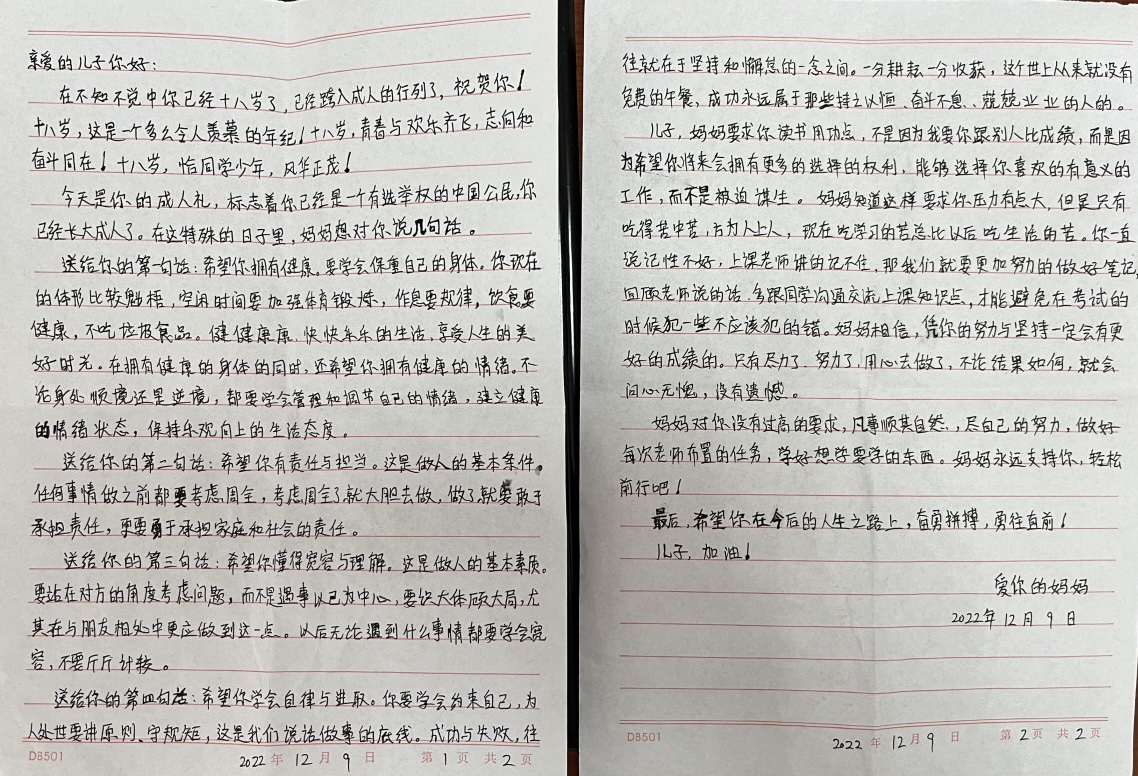 亲爱的儿子你好：
在不知不觉中你已经十八岁了，已经跨入成人的行列了，祝贺你！
十八岁，这是一个多么令人羡慕的年纪！十八岁，青春与欢乐齐飞，志向和
奋斗同在！十八岁，恰同学少年，风华正茂！
今天是你的成人礼，标志着你已经是一个有选举权的中国公民，你
已经长大成人了。在这特殊的日子里，妈妈想对你说几句话。
送给你的第一句话：希望你拥有健康。要学会保重自己的身体。你现在
的体形比较魁梧，空闲时间要加强体育锻炼，作息要规律，饮食要
健康，不吃垃圾食品。健健康康、快快乐乐的生活，享受人生的美
好时光。在拥有健康的身体的同时，还希望你拥有健康的情绪。不
论身处顺境还是逆境，都要学会管理和调节自己的情绪，建立健康
的情绪状态，保持乐观向上的生活态度。
送给你的第二句话：希望你有责任与担当。这是做人的基本条件。
任何事情做之前都要考虑周全，考虑周全了就大胆去做，做了就要敢于
承担责任，更要勇于承担家庭和社会的责任。
送给你的第三句话：希望你懂得宽容与理解。这是做人的基本素质。
要站在对方的角度考虑问题，而不是遇事以己为中心，要识大体顾大局，尤
其在与朋友相处中更应做到这一点。以后无论遇到什么事情都要学会宽
容，不要斤斤计较。
送给你的第四句话：希望你学会自律与进取。你要学会约束自己，为
人处世要讲原则、守规矩，这是我们说话做事的底线。成功与失败，往
DB501
2022年12月9日
第1页 共2页
往就在于坚持和懈怠的一念之间。一分耕耘一分收获，这个世上从来就没有
免费的午餐，成功永远属于那些持之以恒、奋斗不息、兢兢业业的人的。
儿子，妈妈要求你读书用功点，不是因为我要你跟别人比成绩，而是因
为希望你将来会拥有更多的选择的权利，能够选择你喜欢的有意义的
工作，而不是被迫谋生。妈妈知道这样要求你压力有点大，但是只有
吃得苦中苦，方为人上人，现在吃学习的苦总比以后吃生活的苦。你一直
说记性不好，上课老师讲的记不住，那我们就要更加努力的做好笔记，
回顾老师说的话，多跟同学沟通交流上课知识点，才能避免在考试的
时候犯一些不应该犯的错。妈妈相信，凭你的努力与坚持一定会有更
好的成绩的。只有尽力了，努力了，用心去做了，不论结果如何，就会
问心无愧，没有遗憾。
妈妈对你没有过高的要求，凡事顺其自然，尽自己的努力，做好
每次老师布置的任务，学好想学要学的东西。妈妈永远支持你，轻松
前行吧！
最后，希望你在今后的人生之路上，奋勇拼搏，勇往直前！
儿子，加油！
爱你的妈妈
2022年12月9日
DB501
2022年12月9日
第2页 共2页